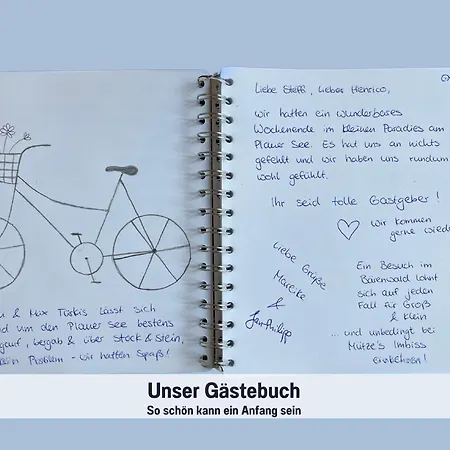 & Max Türkis lässt sich
um den Plauer See bestens
bergab & über Stock & Stein,
kein Problem - wir hatten Spaß!
Liebe Steffi, lieber Henrico,
wir hatten ein wunderbares
Wochenende im kleinen Paradies am
Plauer See. Es hat uns an nichts
gefehlt und wir haben uns rundum
wohl gefühlt.
Ihr seid tolle Gastgeber!
wir kommen
gerne wieder
Liebe Grüße
Mareike
&
Jan-Philipp
Ein Besuch im
Bärenwald lohnt
sich auf jeden
Fall für Groß
& Klein
... und unbedingt bei
Mütze's Imbiss
einkehren!
Unser Gästebuch
So schön kann ein Anfang sein